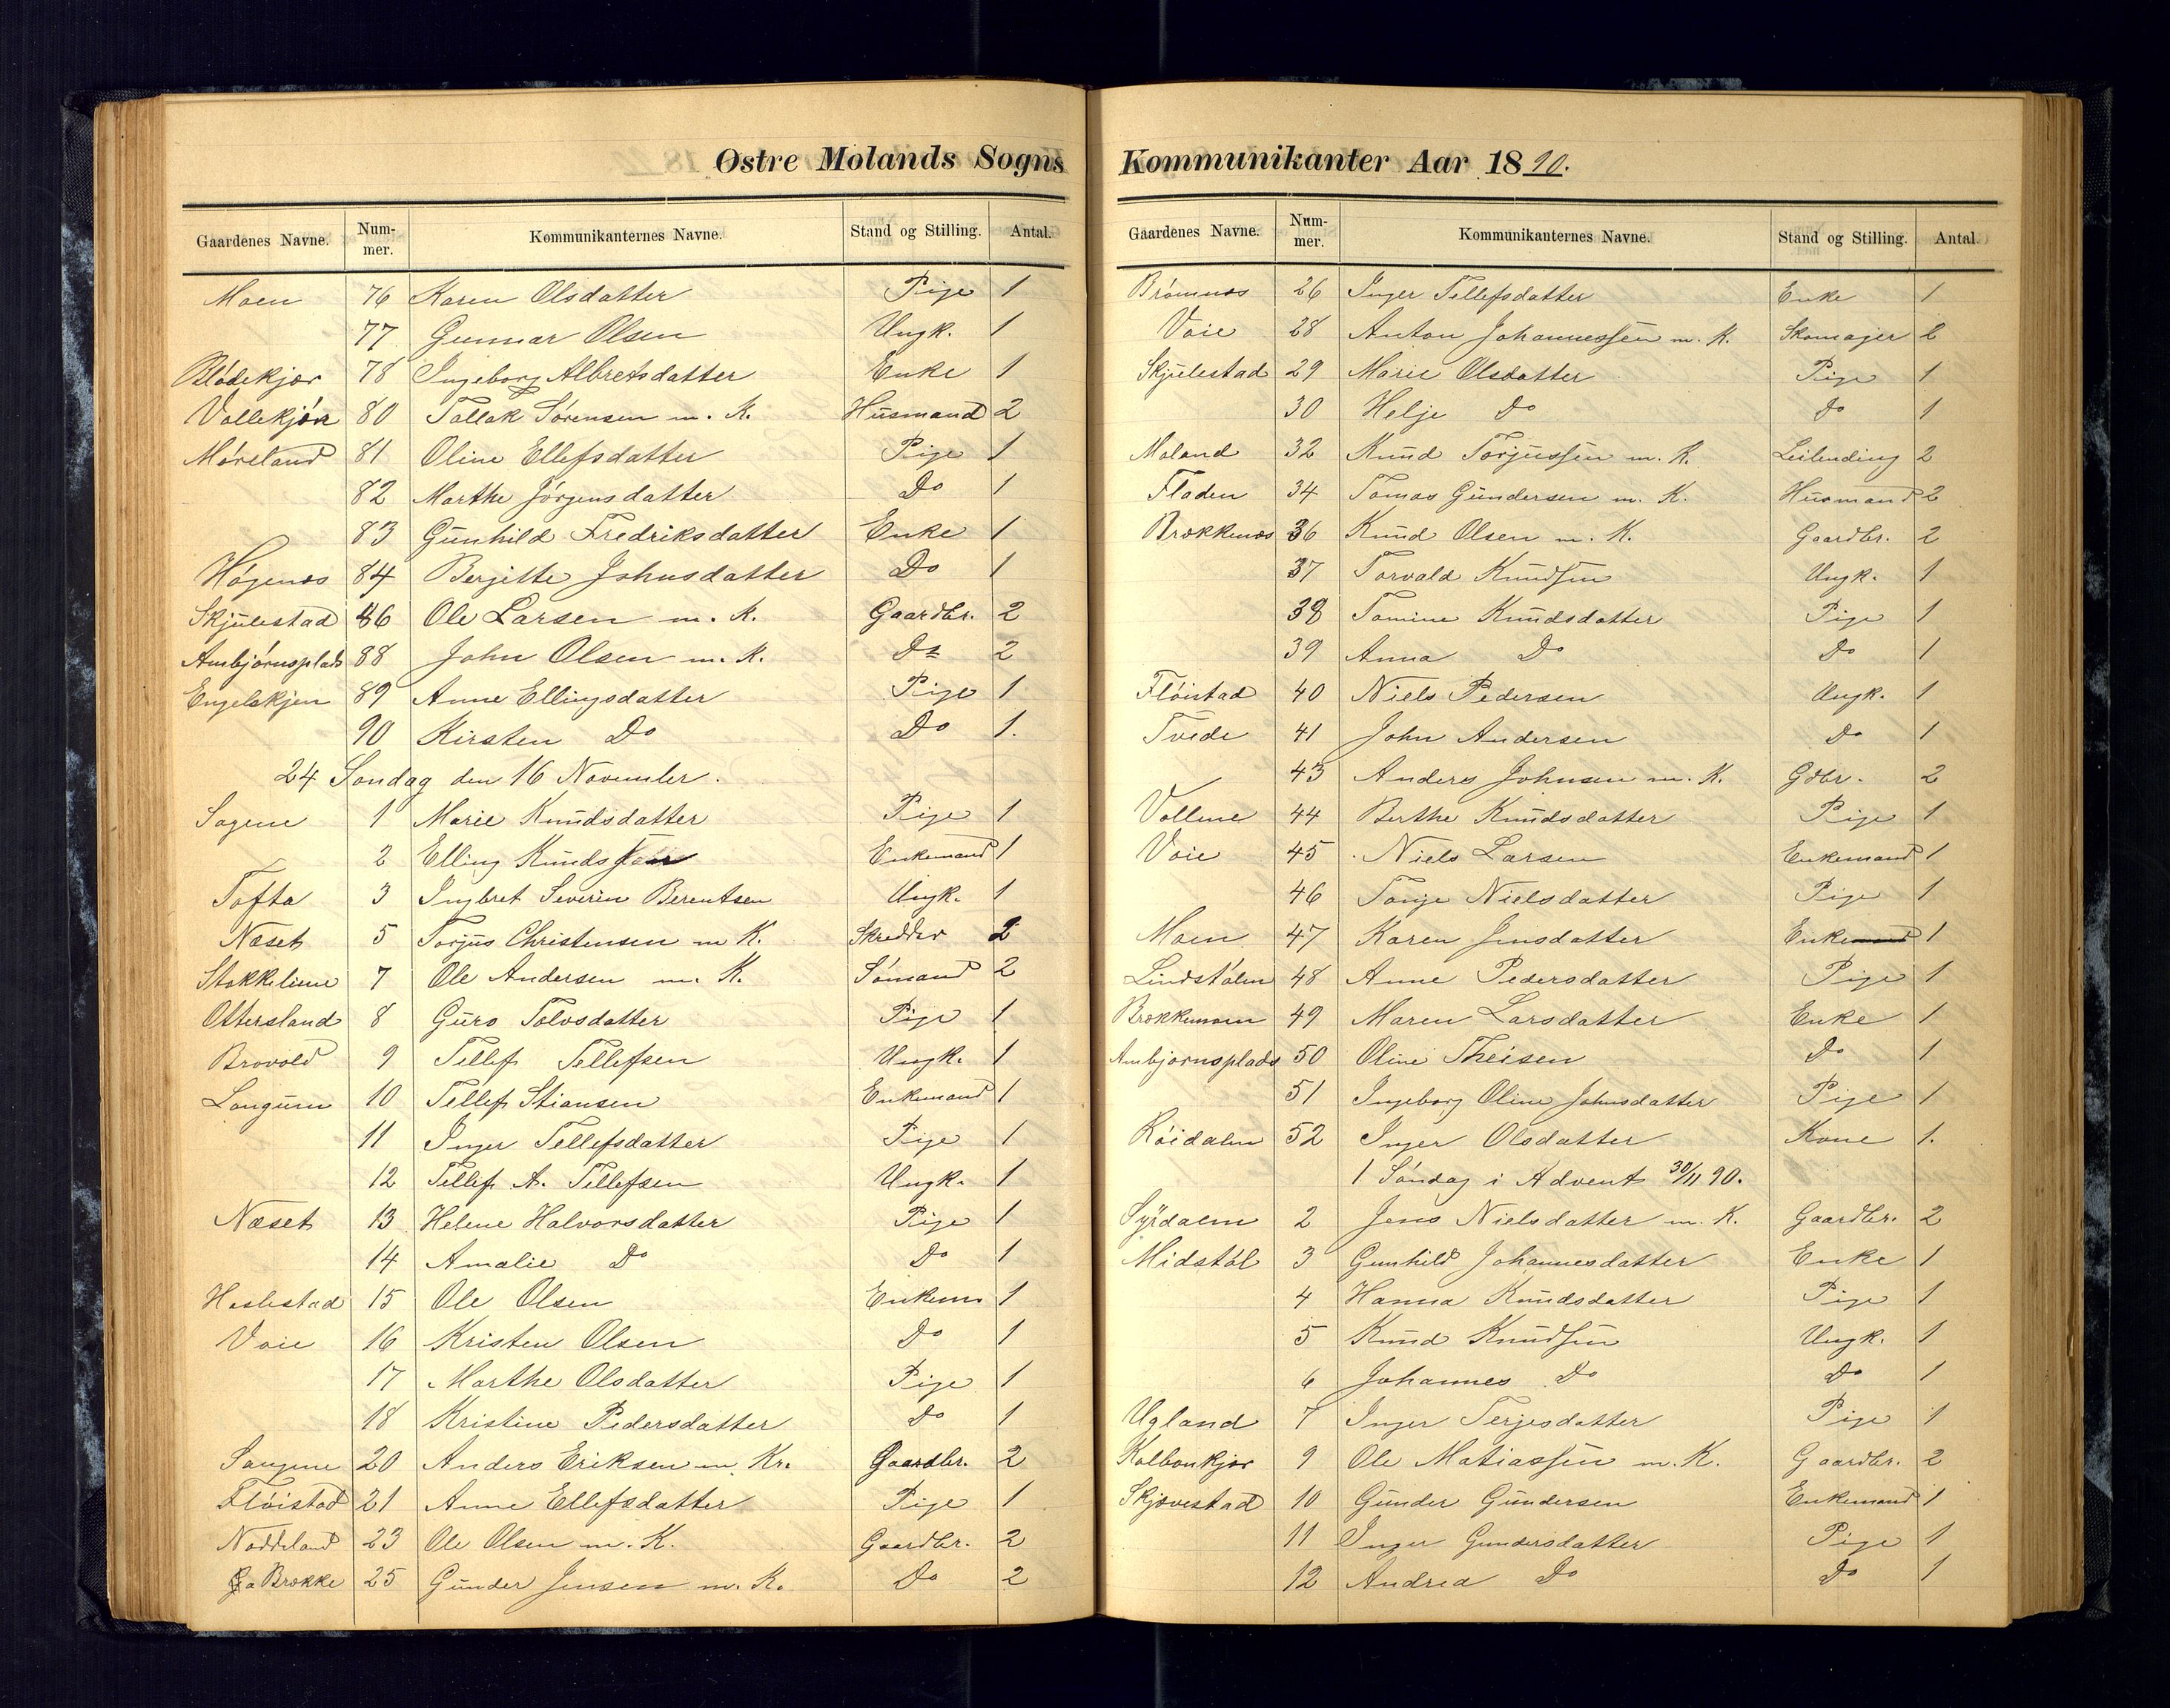 Østre Molands Sogns
Gaardenes Navne. Num-mer. Kommunikanternes Navne. Stand og Stilling. Antal.
Moen 76 Karen Olsdatter Pige 1
77 Gunnar Olsen Ungk. 1
Blödekjær 78 Ingeborg Albretsdatter Enke 1
Vallekjær 80 Tallak Sörensen m. K. Husmand 2
Möreland 81 Oline Ellefsdatter Pige 1
82 Marthe Jörgensdatter Do 1
83 Gunhild Fredriksdatter Enke 1
Högenæs 84 Bergitte Johnsdatter Do 1
Skjulestad 86 Ole Larsen m. K. Gaardbr. 2
Ambjörnsplads 88 John Olsen m. K. Do 2
Engelskjen 89 Anne Ellingsdatter Pige 1
90 Kirsten Do Do 1.
24 Sondag den 16 November.
Sagene 1 Marie Knudsdatter Pige 1
2 Elling Knuds Enkemand 1
Tofta 3 Ingbret Severin Berentsen Ungk. 1
Næset 5 Torjus Christensen m K. Skrædder 2
Stokkeliene 7 Ole Andersen m. K. Sömand 2
Ottersland 8 Guro Tolvsdatter Pige 1
Brovold 9 Tellef Tellefsen Ungk. 1
Langum 10 Tellef Stiansen Enkemand 1
11 Inger Tellefsdatter Pige 1
12 Tellef A. Tellefsen Ungk. 1
Næset 13 Helene Halvorsdatter Pige 1
14 Amalie Do Do 1
Haslestad 15 Ole Olsen Enkem 1
Voie 16 Kristen Olsen Do 1
17 Marthe Olsdatter Pige 1
18 Kristine Pedersdatter Do 1
Saugene 20 Anders Eriksen m. Kr. Gaardbr. 2
Flöistad 21 Anne Ellefsdatter Pige 1
Næddeland 23 Ole Olsen m. K. Gaardbr. 2
Brække 25 Gunder Jensen m. K. Do 2
Kommunikanter Aar 1890.
Gaardenes Navne. Num-mer. Kommunikanternes Navne. Stand og Stilling. Antal.
Brömnes 26 Inger Tellefsdatter Enke 1
Voie 28 Anton Johannessen m. K. Skomager 2
Skjulestad 29 Marie Olsdatter Pige 1
30 Helje Do Do 1
Moland 32 Knud Torjussen m. K. Leilending 2
Floden 34 Tomas Gundersen m. K. Husmand 2
Brækkenæs 36 Knud Olsen m. K. Gaardbr. 2
37 Torvald Knudsen Ungk. 1
38 Tomine Knudsdatter Pige 1
39 Anna Do Do 1
Flöistad 40 Niels Pedersen Ungk. 1
Tvede 41 John Andersen Do 1
43 Anders Johnsen m. K. Gdbr. 2
Vollene 44 Berthe Knudsdatter Pige 1
Voie 45 Niels Larsen Enkemand 1
46 Tonje Nielsdatter Pige 1
Moen 47 Karen Jensdatter Enke 1
Lindstölen 48 Anne Pedersdatter Pige 1
Brækkemoen 49 Maren Larsdatter Enke 1
Ambjornsplads 50 Oline Theisen Do 1
51 Ingeborg Oline Johnsdatter Pige 1
Röidalen 52 Inger Olsdatter Kone 1.
1 Söndag i Advent 30/11 90.
Syrdalen 2 Jens Nielsdatter m. K. Gaardbr. 2
Midstöl 3 Gunhild Johannesdatter Enke 1
4 Hanna Knudsdatter Pige 1
5 Knud Knudsen Ungk. 1
6 Johannes Do Do 1
Ugland 7 Inger Terjesdatter Pige 1
Kalbonkjær 9 Ole Matiassen m. K. Gaardbr. 2
Skjævestad 10 Gunder Gundersen Enkemand 1
11 Inger Gundersdatter Pige 1
12 Andrea Do Do 1